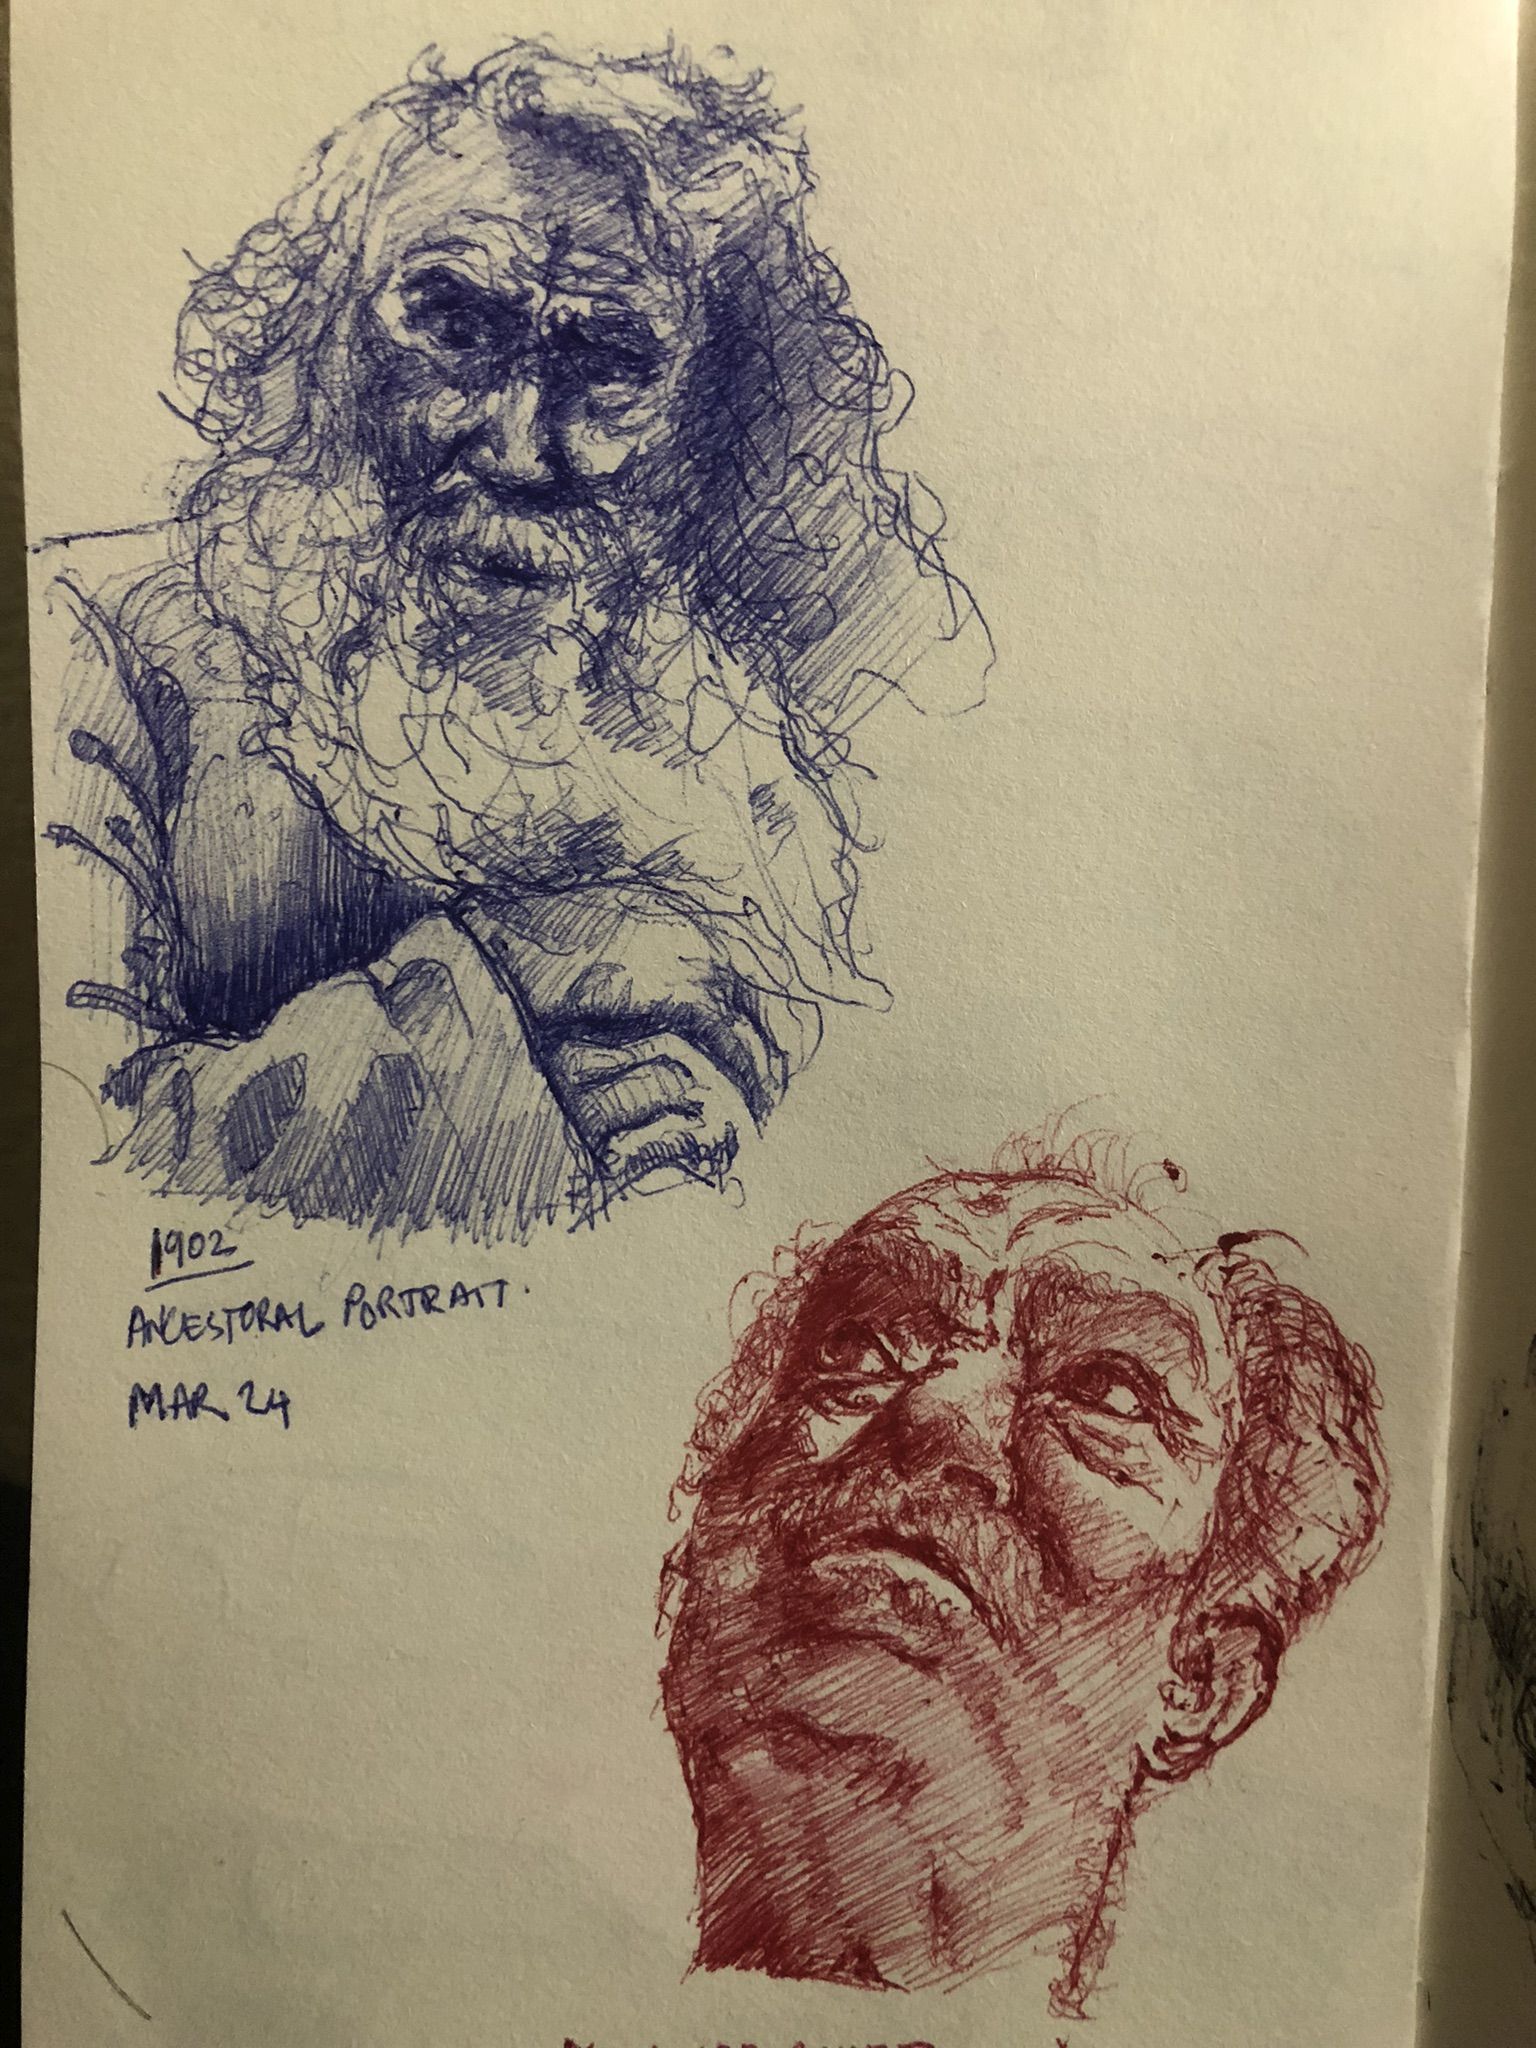 1902
ANCESTORAL PORTRAIT.
MAR 24